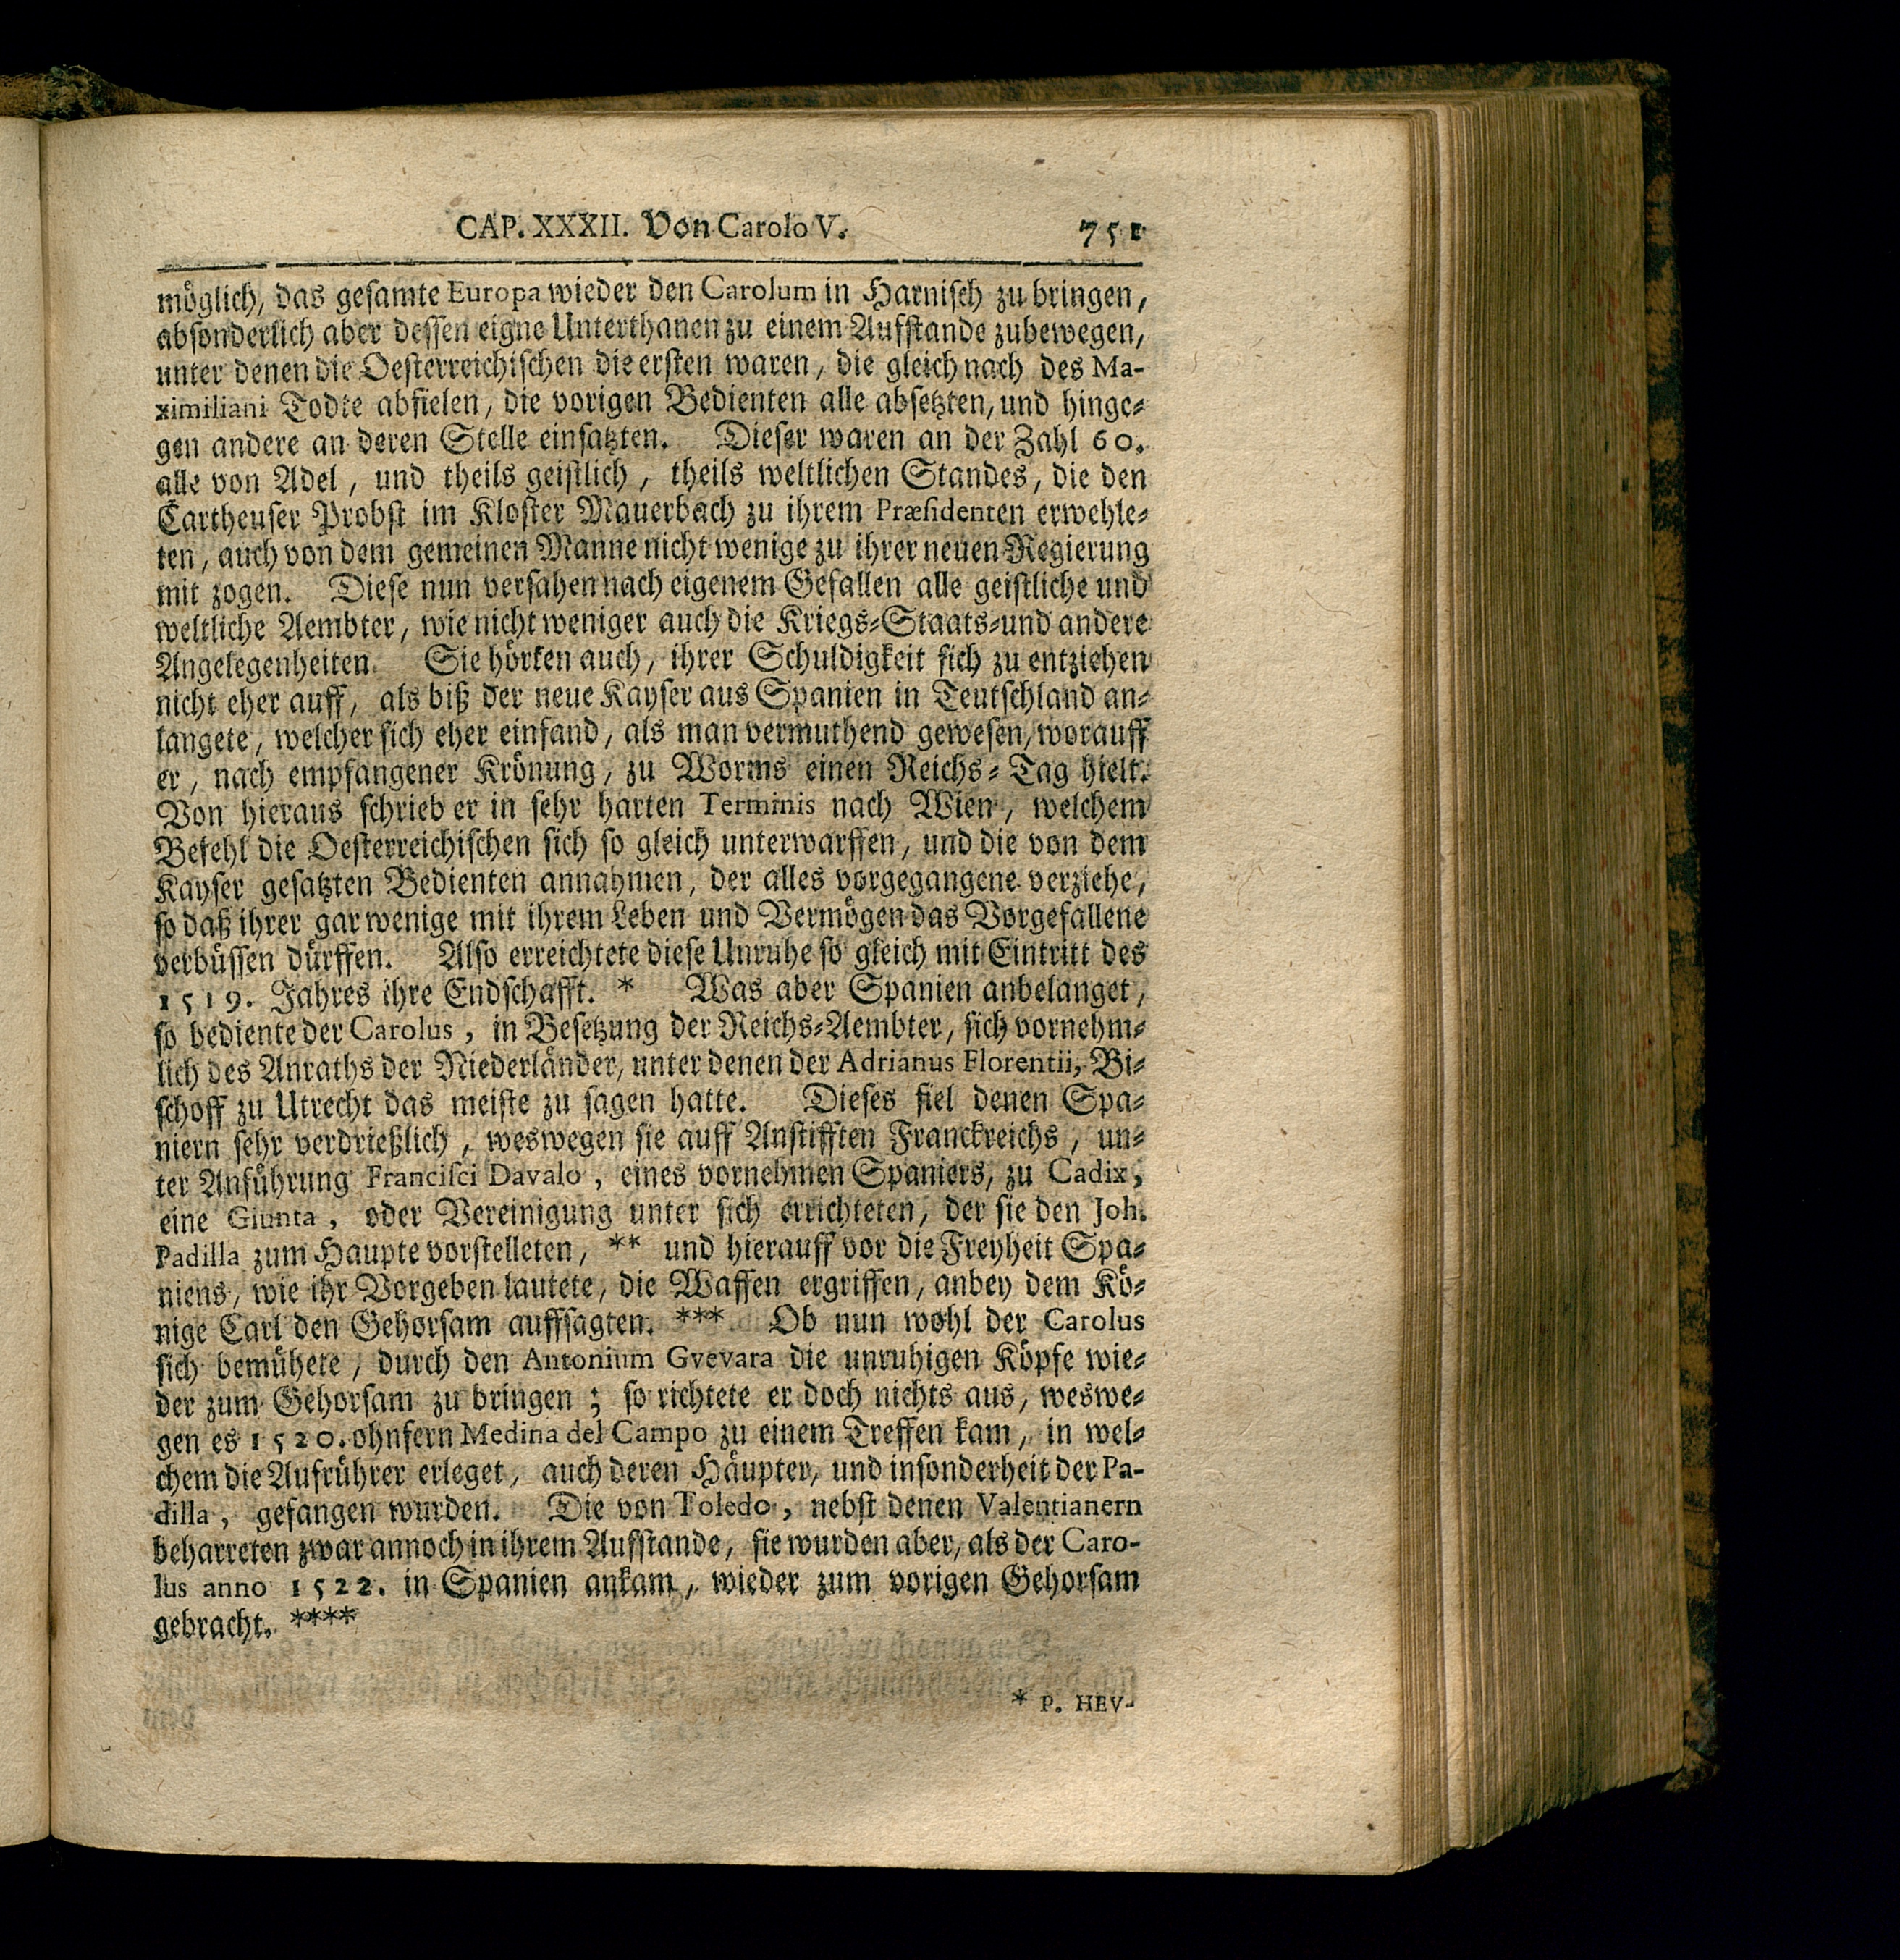 CAP. XXXII. Von Carolo V. 751
möglich, das gesamte Europa wieder den Carolum in Harnisch zu bringen,
absonderlich aber dessen eigne Unterthanen zu einem Aufstande zubewegen,
unter denen die Oesterreichischen die ersten waren, die gleich nach des Ma-
ximiliani Todte abfielen, die vorigen Bedienten alle absetzten, und hinge-
gen andere an deren Stelle einsatzten. Dieser waren an der Zahl 60.
alle von Adel, und theils geistlich, theils weltlichen Standes, die den
Cartheuser Probst im Kloster Mauerbach zu ihrem Præsidenten erwehle-
ten, auch von dem gemeinen Manne nicht wenige zu ihrer neuen Regierung
mit zogen. Diese nun versahen nach eigenem Gefallen alle geistliche und
weltliche Aembter, wie nicht weniger auch die Kriegs-Staats-und andere
Angelegenheiten. Sie hörten auch, ihrer Schuldigkeit sich zu entziehen
nicht eher auff, als biß der neue Kayser aus Spanien in Teutschland an-
langete, welcher sich eher einfand, als man vermuthend gewesen, worauff
er, nach empfangener Krönung, zu Worms einen Reichs-Tag hielt.
Von hieraus schrieb er in sehr harten Terminis nach Wien, welchem
Befehl die Oesterreichischen sich so gleich unterwarffen, und die von dem
Kayser gesatzten Bedienten annahmen, der alles vorgegangene verziehe,
so daß ihrer gar wenige mit ihrem Leben und Vermögen das Vorgefallene
verbüssen dürffen. Also erreichtete diese Unruhe so gleich mit Eintritt des
1519. Jahres ihre Endschafft. * Was aber Spanien anbelanget,
so bediente der Carolus, in Besetzung der Reichs-Aembter, sich vornehm-
lich des Anraths der Niederländer, unter denen der Adrianus Florentii, Bi-
schoff zu Utrecht das meiste zu sagen hatte. Dieses fiel denen Spa-
niern sehr verdrießlich, weswegen sie auff Anstifften Franckreichs, un-
ter Anführung Francisci Davalo, eines vornehmen Spaniers, zu Cadix,
eine Giunta, oder Vereinigung unter sich errichteten, der sie den Joh.
Padilla zum Haupte vorstelleten, ** und hierauff vor die Freyheit Spa-
niens, wie ihr Vorgeben lautete, die Waffen ergriffen, anbey dem Kö-
nige Carl den Gehorsam auffsagten. *** Ob nun wohl der Carolus
sich bemühete, durch den Antonium Gvevara die unruhigen Köpfe wie-
der zum Gehorsam zu bringen; so richtete er doch nichts aus, weswe-
gen es 1520. ohnfern Medina del Campo zu einem Treffen kam, in wel-
chem die Aufrührer erleget, auch deren Häupter, und insonderheit der Pa-
dilla, gefangen wurden. Die von Toledo, nebst denen Valentianern
beharreten zwar annoch in ihrem Aufstande, sie wurden aber, als der Caro-
lus anno 1522. in Spanien ankam, wieder zum vorigen Gehorsam
gebracht. ****
* P. HEV-